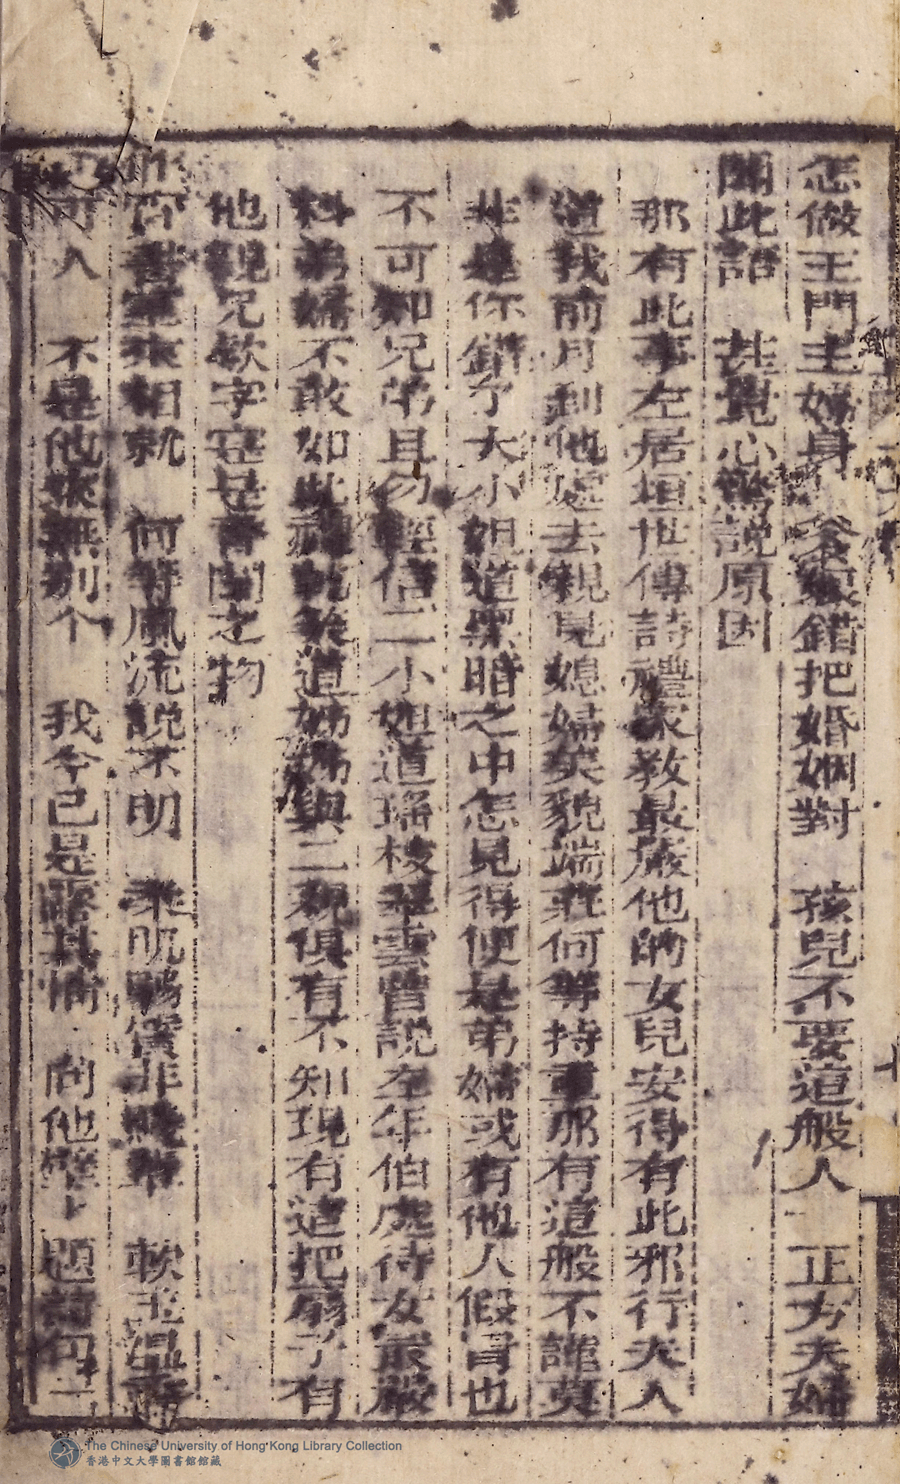 怎做王門主婦身 爹娘錯把婚姻對 孩兒不要這般人 正方夫婦
聞此語 甚覺心驚說原因
那有此事左居垣世傳詩禮家教最嚴他的女兒安得有此邪行夫人
道我前月到他處去親見媳婦矣貌端莊何等持重那有這般不謹莫
非是你錯了大小姐道黑暗之中怎見得便是弟婦或有他人假冒也
不可知兄弟且勿輕信二小姐道瑤枝翠雲曾說左年伯處待女最嚴
料弟婦不敢如此 道姊姊與二親俱有不知現有這把扇子有
他親兄欸字定是香閨之物
來相就 何等風流說不明 柔肌 實非 軟玉溫香
可人 不是他來無別个 我今已是 其情 向他 上題詩句
The Chinese University of Hong Kong Library Collection
香港中文大學圖書館館藏